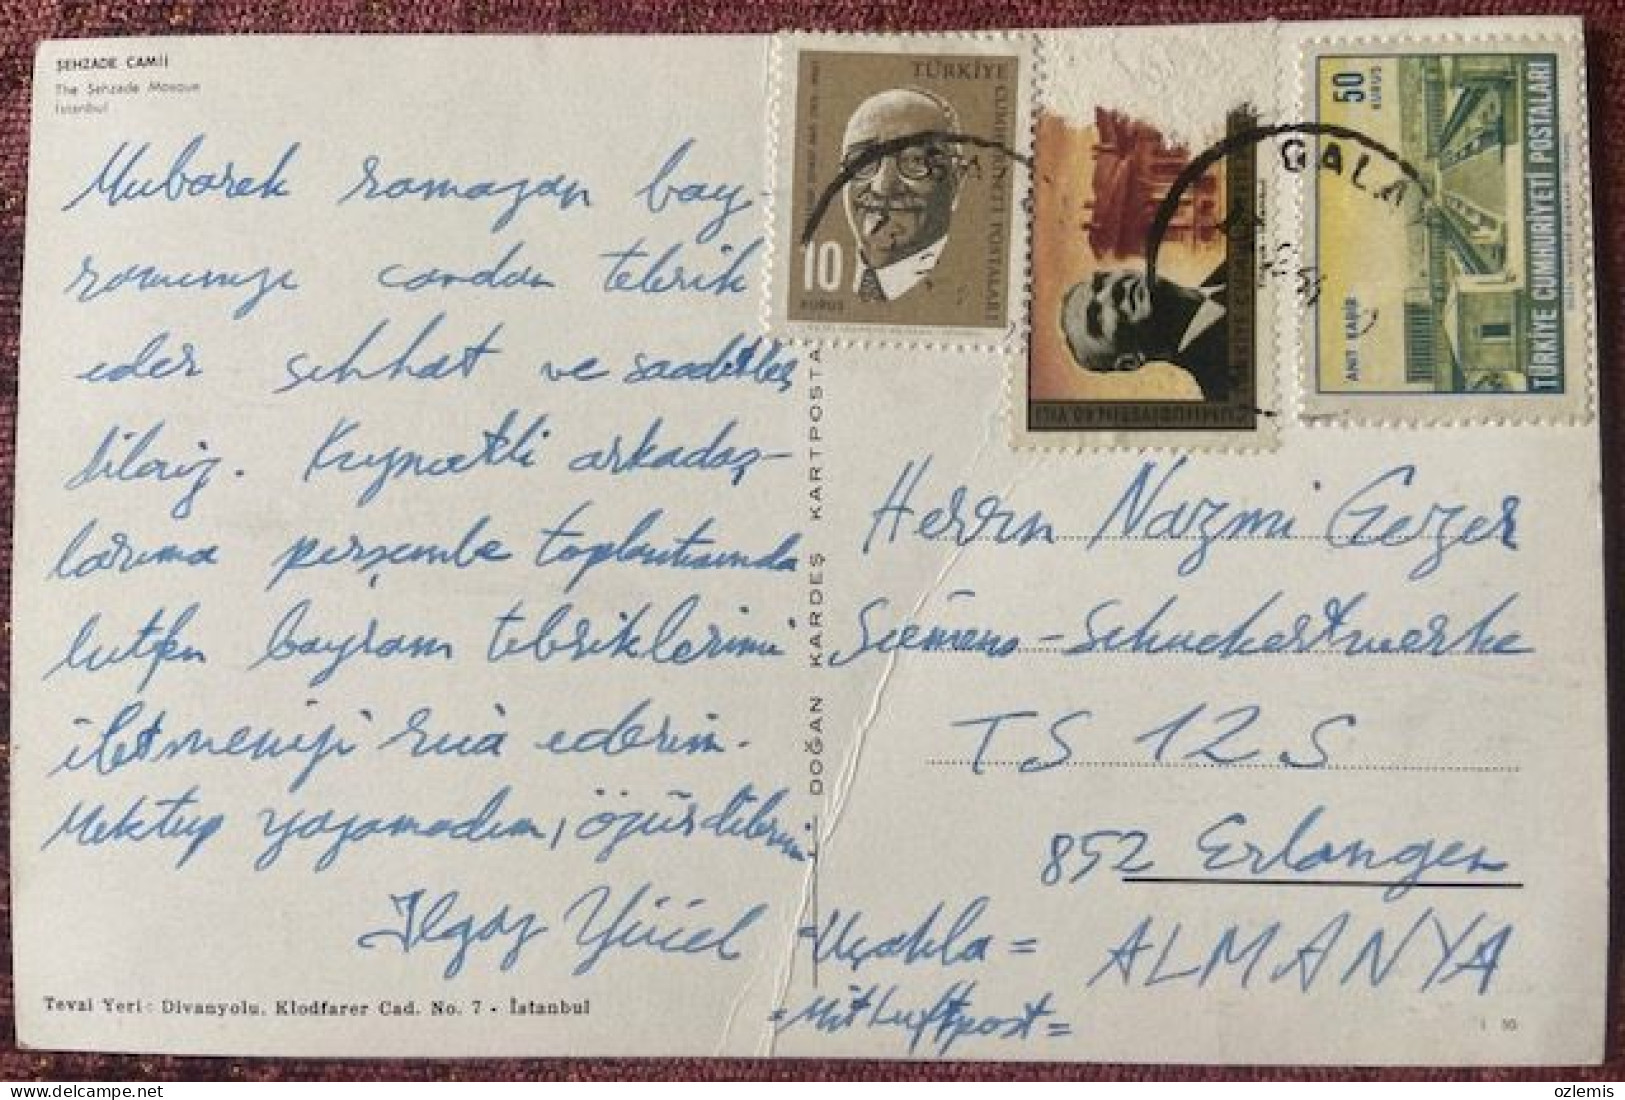 ŞEHZADE CAMİİ
The Şehzade Mosque
İstanbul
Mubarek ramazan bay-
ramınızı candan tebrik
eder sıhhat ve saadetler
dileriz. Kıymetli arkadaş-
larıma perşembe toplantısında
lutfen bayram tebriklerimi
iletmenizi rica ederim.
Mektup yazamadım, özür dilerim.
Ilgaz Yücel
Tevzi Yeri: Divanyolu, Klodfarer Cad. No. 7 - İstanbul
DOĞAN KARDEŞ KARTPOSTA
TÜRKİYE CUMHURİYETİ POSTALARI
10
KURUŞ
CUMHURİYETİN 40. YILI
50
KURUŞ
ANIT KABİR
TÜRKİYE CUMHURİYETİ POSTALARI
GALA
Herrn Nazmi Gezer
Siemens-Schuckertwerke
TS 12 S
852 Erlangen
=Uçakla= ALMANYA
=Mit Luftpost=
ozlemis